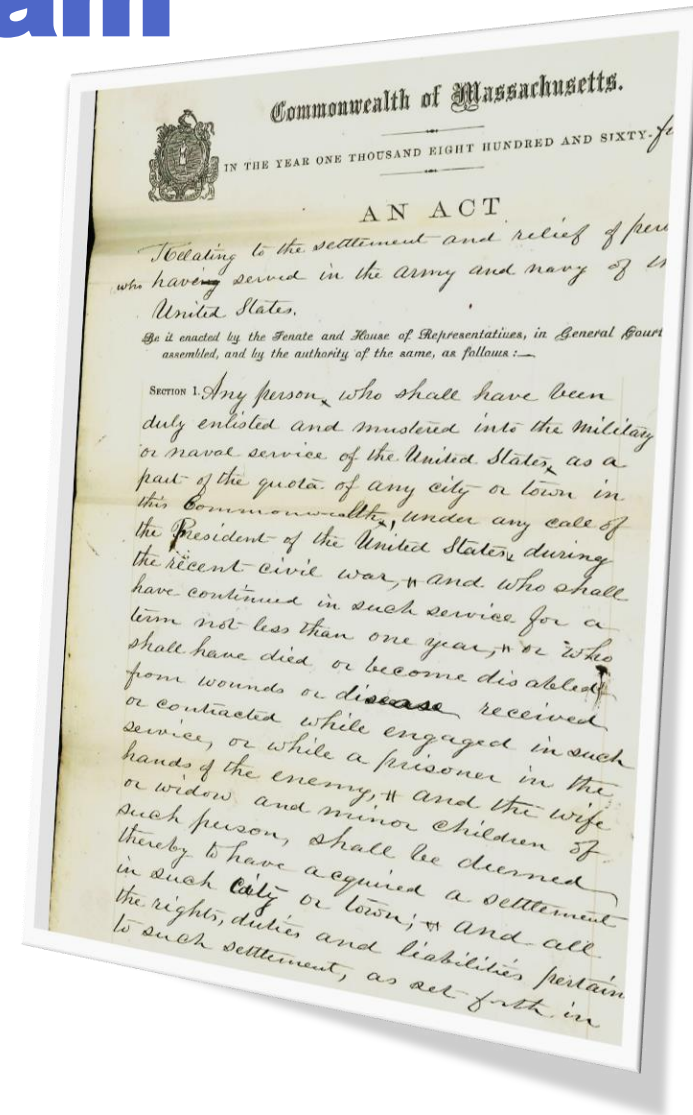 am
Commonwealth of Massachusetts.
IN THE YEAR ONE THOUSAND EIGHT HUNDRED AND SIXTY-
AN ACT
Relating to the settlement and relief of
who having served in the army and navy of
United States.
Be it enacted by the Senate and House of Representatives, in General Court
assembled, and by the authority of the same, as follows:—
SECTION 1. Any person, who shall have been
duly enlisted and mustered into the military
or naval service of the United States, as a
part of the quota of any city or town in
this Commonwealth, under any call of
the President of the United States, during
the recent civil war, and who shall
have continued in such service for a
term not less than one year, or who
shall have died or become disabled
from wounds or disease received
or contracted while engaged in such
service, or while a prisoner in the
hands of the enemy, and the wife
or widow and minor children of
such person, shall be deemed
thereby to have acquired a settlement
in such city or town; and all
the rights, duties and liabilities pertain
to such settlement, as set forth in